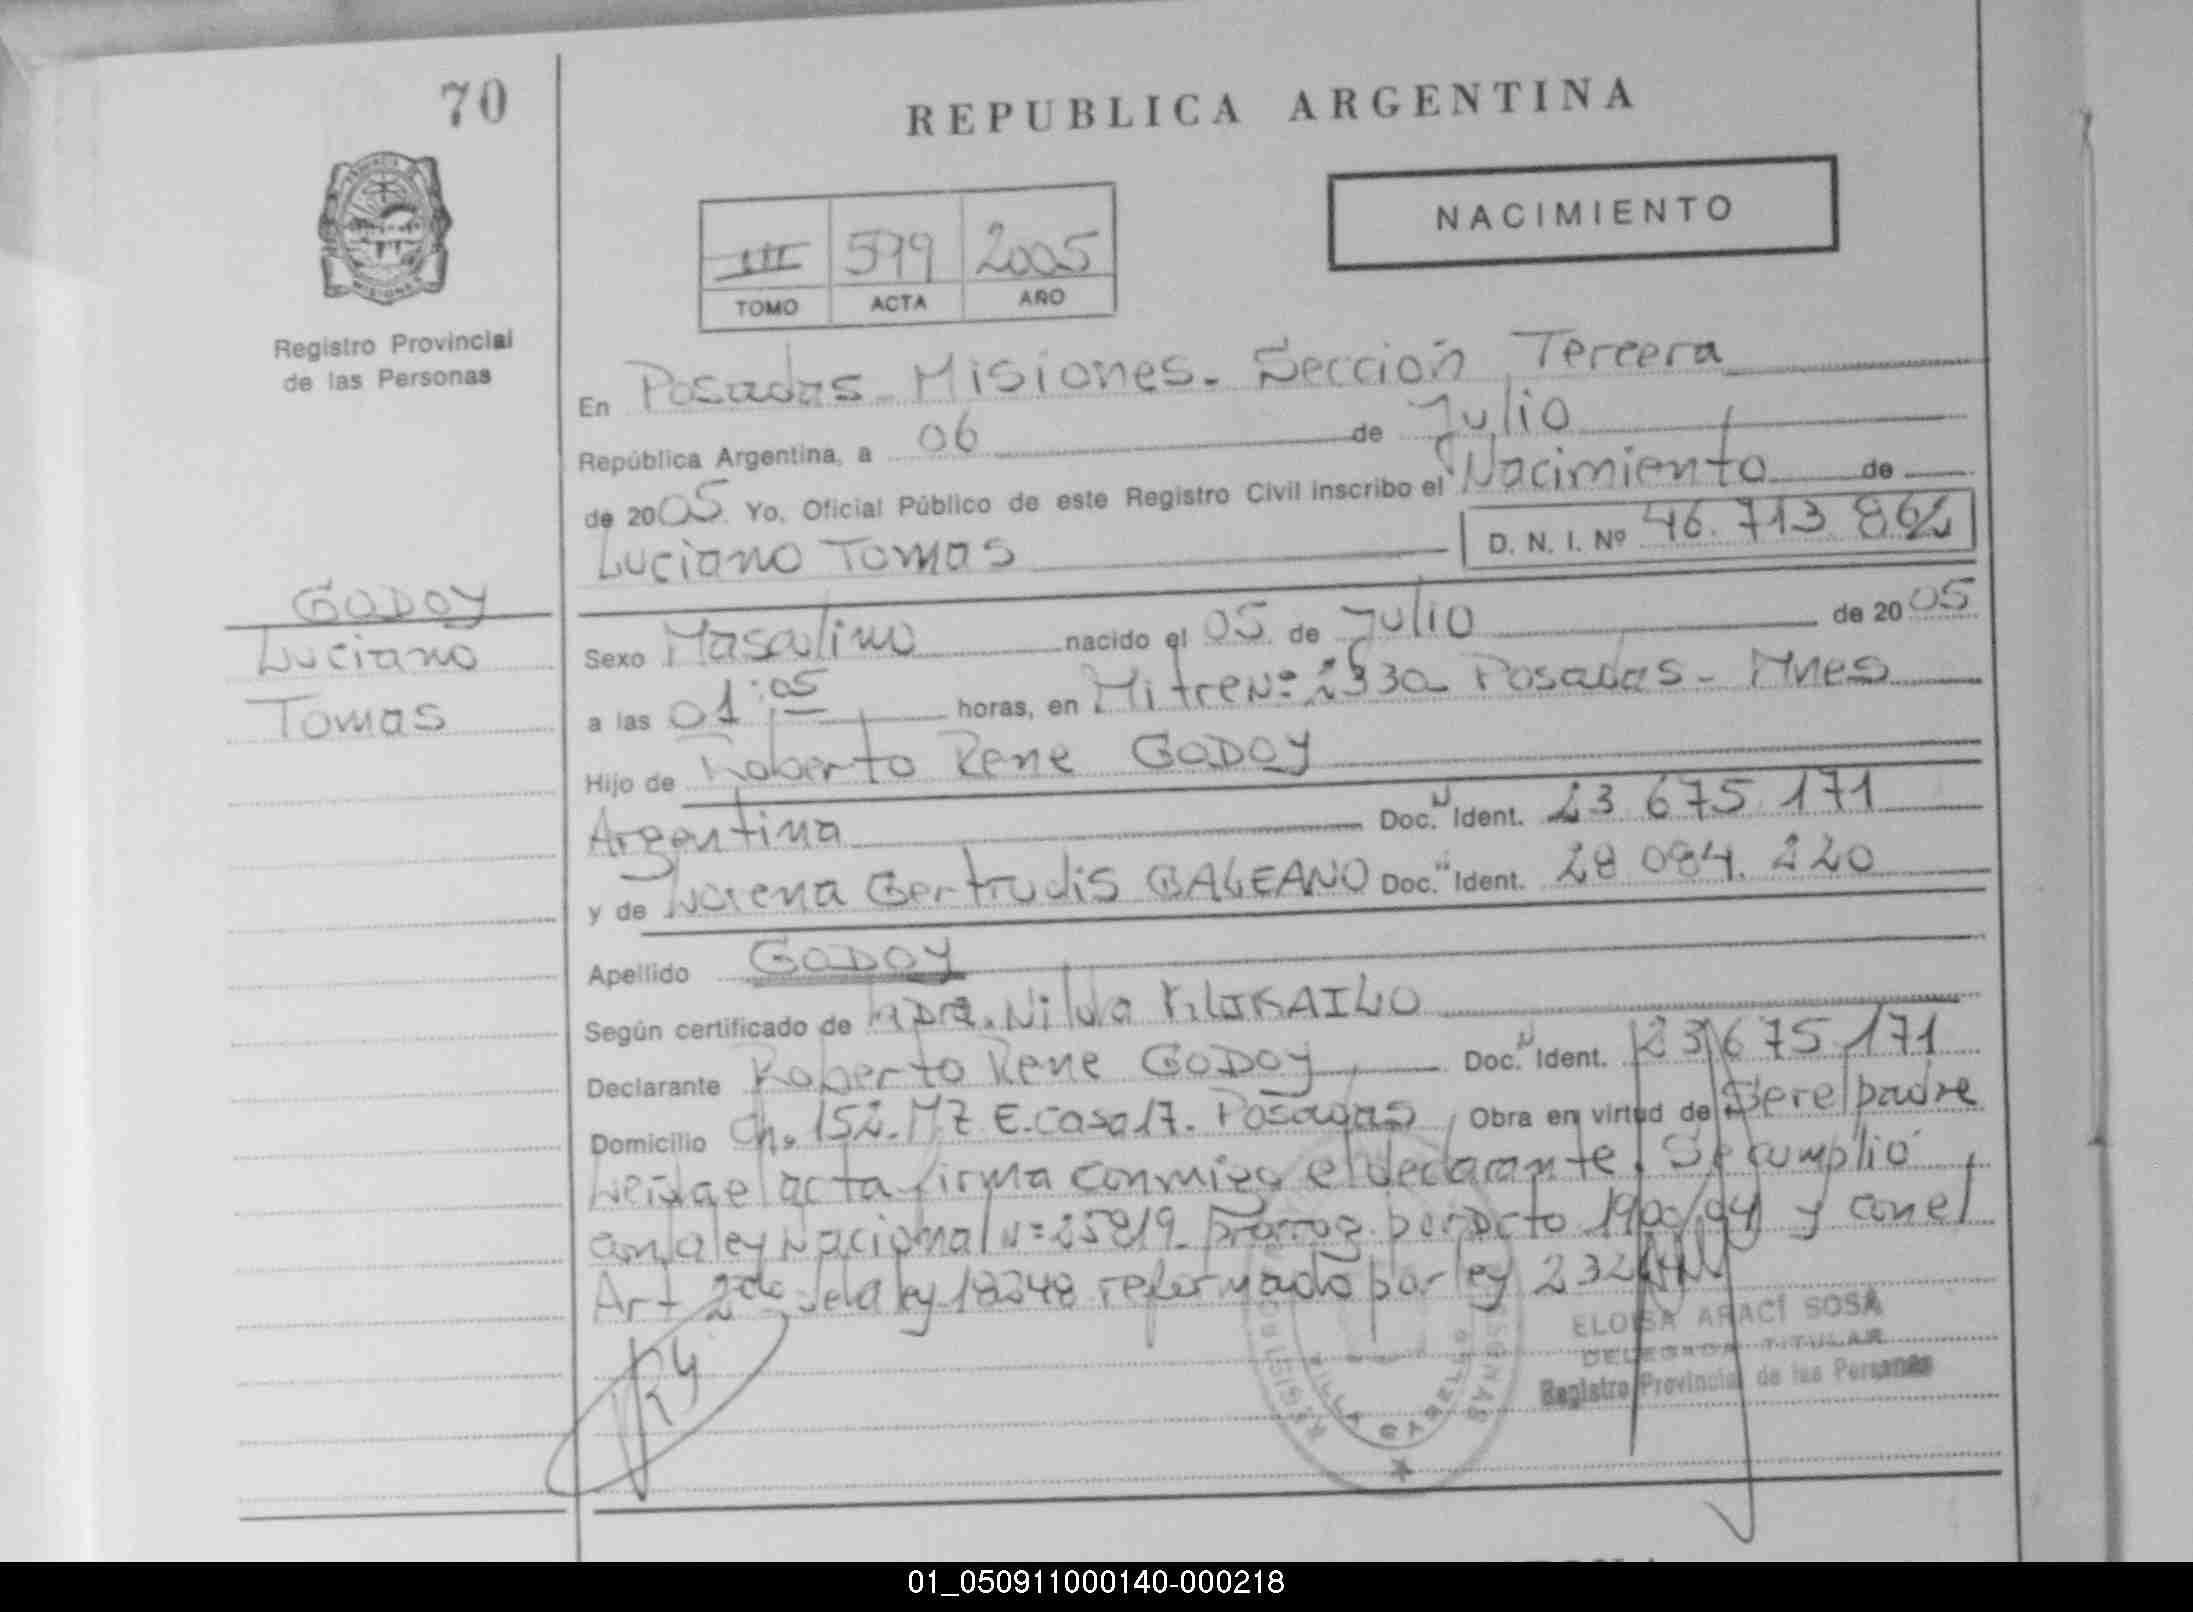 70
REPUBLICA ARGENTINA
NACIMIENTO
III 599 2005
TOMO ACTA AÑO
Registro Provincial
de las Personas
En Posadas - Misiones. Sección Tercera
República Argentina, a 06 de Julio
de 2005 Yo, Oficial Público de este Registro Civil inscribo el Nacimiento de
Luciano Tomas D. N. I. Nº 46.713.862
GODOY
Luciano
Tomas
Sexo Masculino nacido el 05 de Julio de 2005
a las 01:05 horas, en Mitre Nº 2330 Posadas - Mnes
Hijo de Roberto Rene GODOY
Argentina Doc. N Ident. 23 675 171
y de Lorena Gertrudis GALEANO Doc. Ident. 28 084. 220
Apellido GODOY
Según certificado de Nilda
Declarante Roberto Rene GODOY Doc. N Ident. 23 675 171
Domicilio Ch. 152. MZ E. casa 17. Posadas Obra en virtud de Ser el padre
Leida el acta firma conmigo el declarante. Se cumplio
con la ley Nacional Nº 25819 prorrog. por Dcto 1900/04 y con el
Art 2do de la ley 18248 reformado por ley
ELOISA ARACÍ SOSA
DELEGADA TITULAR
Registro Provincial de las Personas
01_050911000140-000218